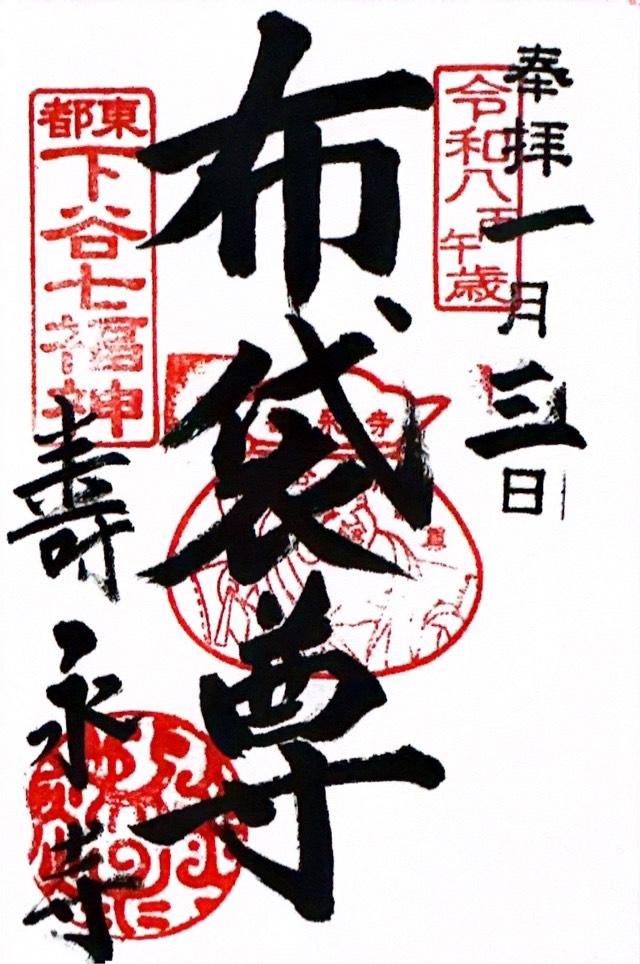 奉拝
令和八丙午歳
一月三日
布袋尊
東都
下谷七福神
壽永寺